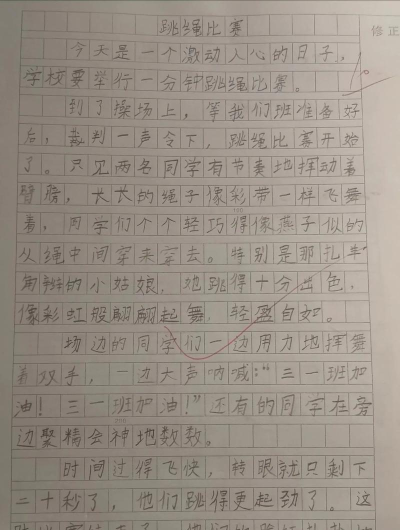 跳绳比赛
修正
今天是一个激动人心的日子，
学校要举行一分钟跳绳比赛。
到了操场上，等我们班准备好
后，裁判一声令下，跳绳比赛开始
了。只见两名同学有节奏地挥动着
臂膀，长长的绳子像彩带一样飞舞
着，同学们个个轻巧得像燕子似的
从绳中间穿来穿去。特别是那扎羊
角辫的小姑娘，她跳得十分出色，
像彩虹般翩翩起舞，轻盈自如。
场边的同学们一边用力地挥舞
着双手，一边大声呐喊：“三一班加
油！三一班加油！”还有的同学在旁
边聚精会神地数数。
时间过得飞快，转眼就只剩下
二十秒了，他们跳得更起劲了。这